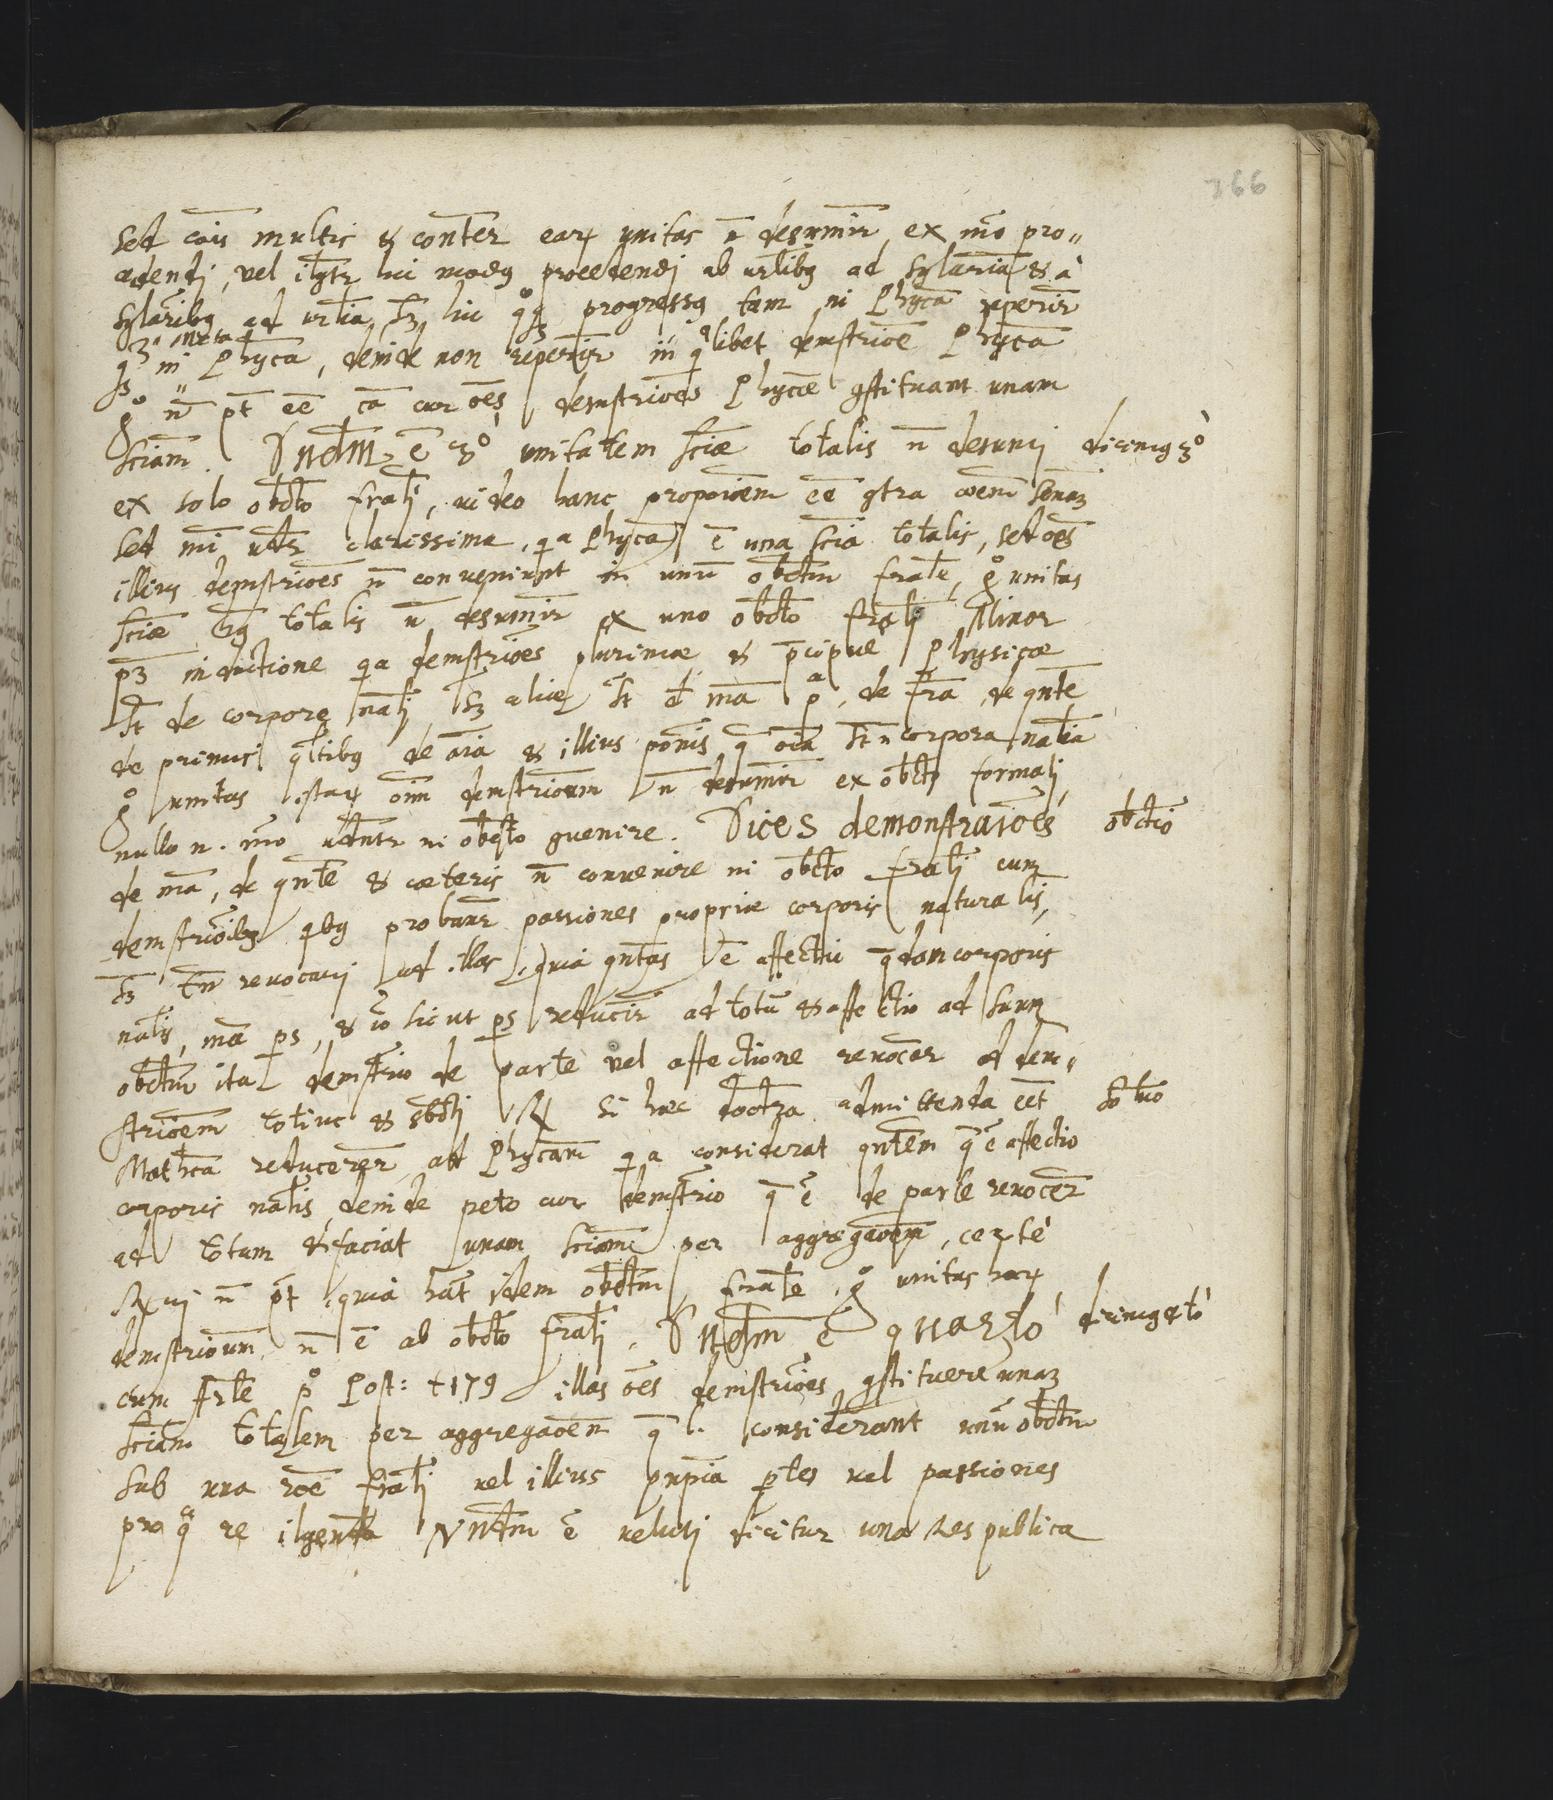 166
sed cōis multis & cont̄er earꝝ unitas n̄ desumit̄r ex m̄o pro„
cedendj, vel ilḡtr hic modꝰ procedendj ab uɫibꝰ ad sylaria & à
sylaribꝰ ad uɫia sꝫ hic qᵒqꝫ progressꝰ tam in Phyca reperit̄r
qᵃ in Metaphyca, deinde non reperitr in qᵃlibet demstrioē Phyca
gᵒ n̄ pt̄ eē cā cur oēs demstrioēs Phycæ ɔstituant unam
sciam. Dnd̄m ē 3ᵒ unitatem sciæ totalis n̄ desumj
dicimꝰ 3ᵒ
ex solo obcto fralj, video hanc propoioem eē ɔtra coem̄ senaꝫ
sed mi vdr clarissima, qᵃ Phyca ē una scia totalis, sed oēs
illius demstrioēs n̄ conveniunt in unū obctm frale, gᵒ unitas
sciæ totalis n̄ desumit̄r ex uno obcto fralj Minor
pꝫ inductione qᵃ demstrioēs plurimæ & p̄cipue Physicæ
st̄ de corpore nalj sꝫ aliæ st̄ d̄ mā pᵃ, de fra, de qnte
de primis qltibꝰ de aīa & illius ponis q̄ oīa st̄ n̄ corpora nalia
gᵒ unitas istarꝝ oīm demstrioum n̄ desumit̄r ex obcto formalj
nullo n. m̄o vdntr in obcto ɔvenire. Dices demonstraioēs
obctio
de mā, de qnte & cæteris n̄ convenire in obcto fralj cum
demstrioibꝰ qbꝰ probantr passiones propriæ corporis naturalis,
sꝫ tn̄ revocarj ad illas, quia qntas ē affectio quædam corporis
nalis, mā ps, & iō sicut ps reducit̄r ad totū & affectio ad suum
obctm ita demstrio de parte vel affectione revocatr ad dem„
strioem totius & sbctj ℞ si hæc doctra admittenda eēt
solutio
Mathca reduceretr ad Phycam qᵃ considerat qntem q̄ ē affectio
corporis nalis, deinde peto cur demstrio q̄ ē de parte revocetr
ad totum & faciat unam sciam per aggregaoem, certè
n̄ pt̄ quia hāt idem obctm frale, gᵒ unitas harꝝ
demstrioum n̄ ē ab obcto fralj. Dndm ē quarto
dicimꝰ 4tò
cum Arle pᵒ Post: t 179 illas oēs demstrioēs ɔstituere unaꝫ
sciam totalem per aggregaoem q̄ considerant unū obctm
sub una roē fralj vel illius pnpia ptes vel passiones
pro qᵃ re ilgenda Nndm ē velutj dicitur una Respublica